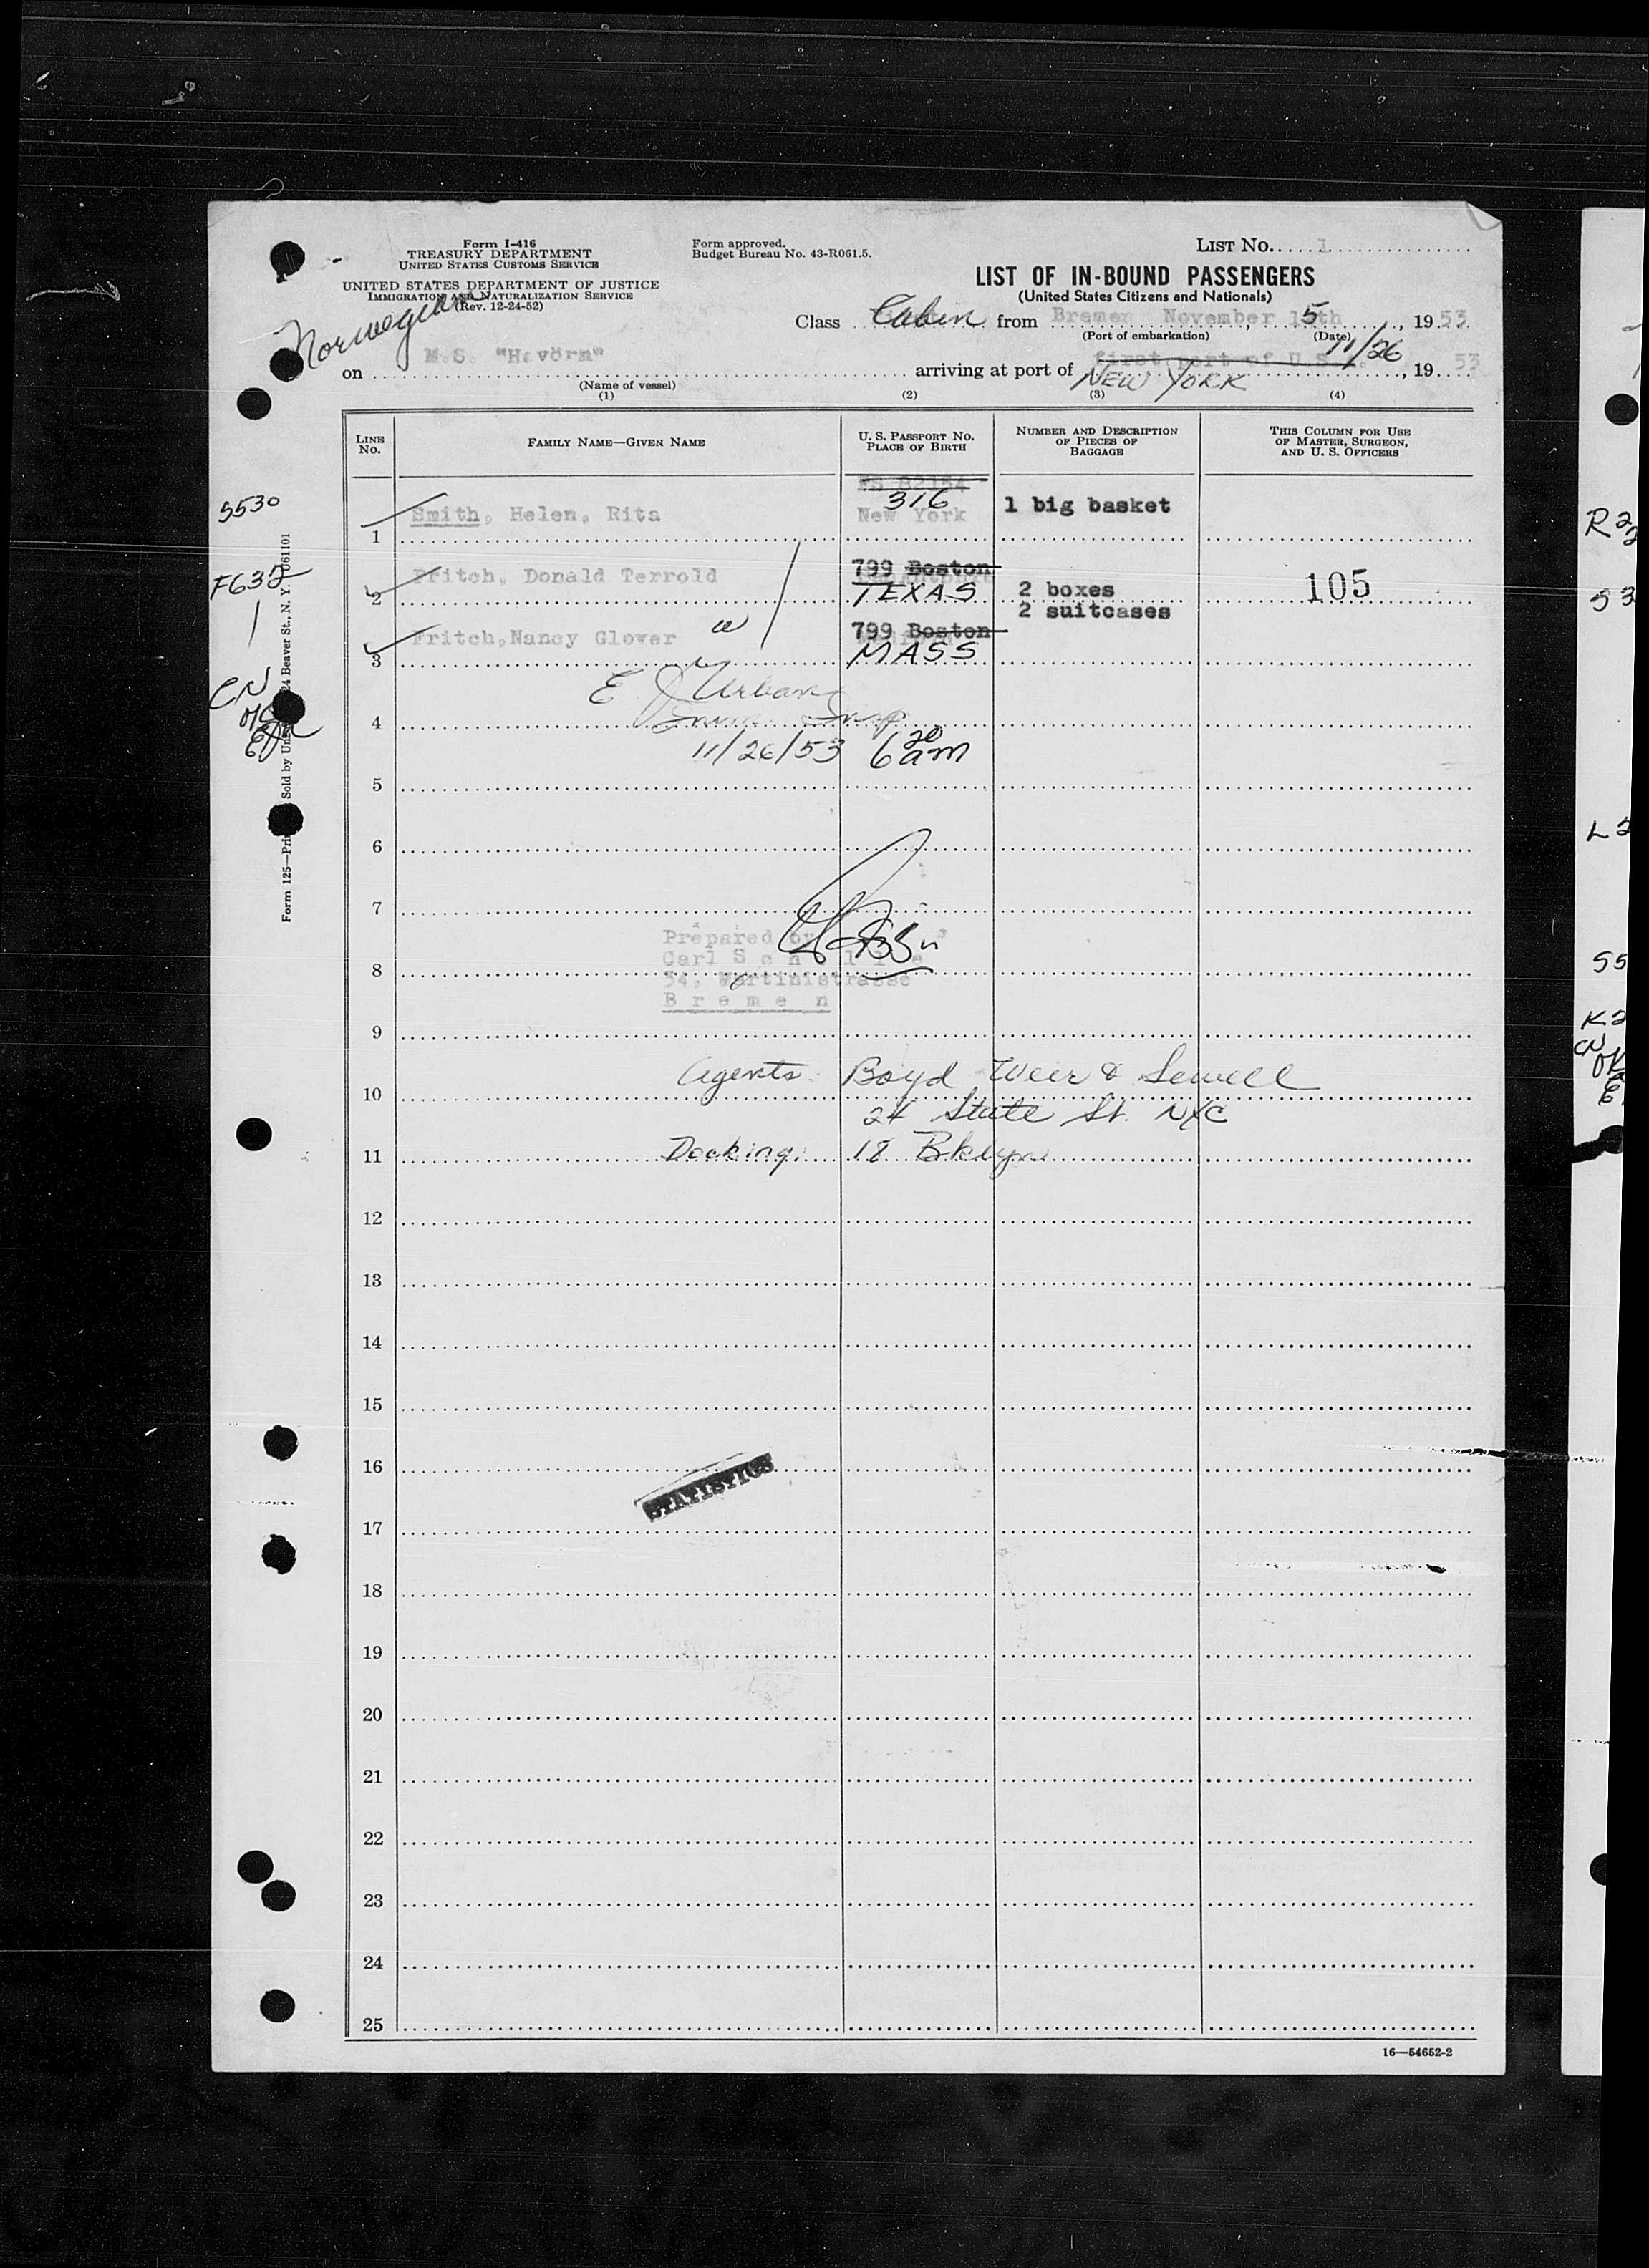 Form I-416
TREASURY DEPARTMENT
UNITED STATES CUSTOMS SERVICE
UNITED STATES DEPARTMENT OF JUSTICE
IMMIGRATION AND NATURALIZATION SERVICE
(Rev. 12-24-52)
Form approved.
Budget Bureau No. 43-R061.5.
LIST No. 1
LIST OF IN-BOUND PASSENGERS
(United States Citizens and Nationals)
Norwegian
Class Cabin from Bremen November 5, 1953
(Port of embarkation) (Date)
11/26
on M.S. "Havörn" arriving at port of first port of U.S.A. NEW YORK, 1953
(Name of vessel)
(1) (2) (3) (4)
LINE No.
FAMILY NAME—GIVEN NAME
U. S. PASSPORT No. PLACE OF BIRTH
NUMBER AND DESCRIPTION OF PIECES OF BAGGAGE
THIS COLUMN FOR USE OF MASTER, SURGEON, AND U. S. OFFICERS
S530
316
1 Smith, Helen, Rita New York 1 big basket
F632
799 Boston
2 Fritch, Donald Terrold TEXAS 2 boxes 105
2 suitcases
799 Boston
3 Fritch, Nancy Glover w MASS
E J Urban
4 Imm. Insp
11/26/53 6 20 am
5
6
7
Prepared by
Carl
8
54, Martinistrasse
Bremen
9
Agents: Boyd Weir & Sewell
10
24 State St. NYC
11 Docking: 18 Bklyn
12
13
14
15
16
STATISTICS
17
18
19
20
21
22
23
24
25
16—54652-2
Form 125
Sold by
24 Beaver St., N. Y.
R
S3
L2
S5
K2
CN